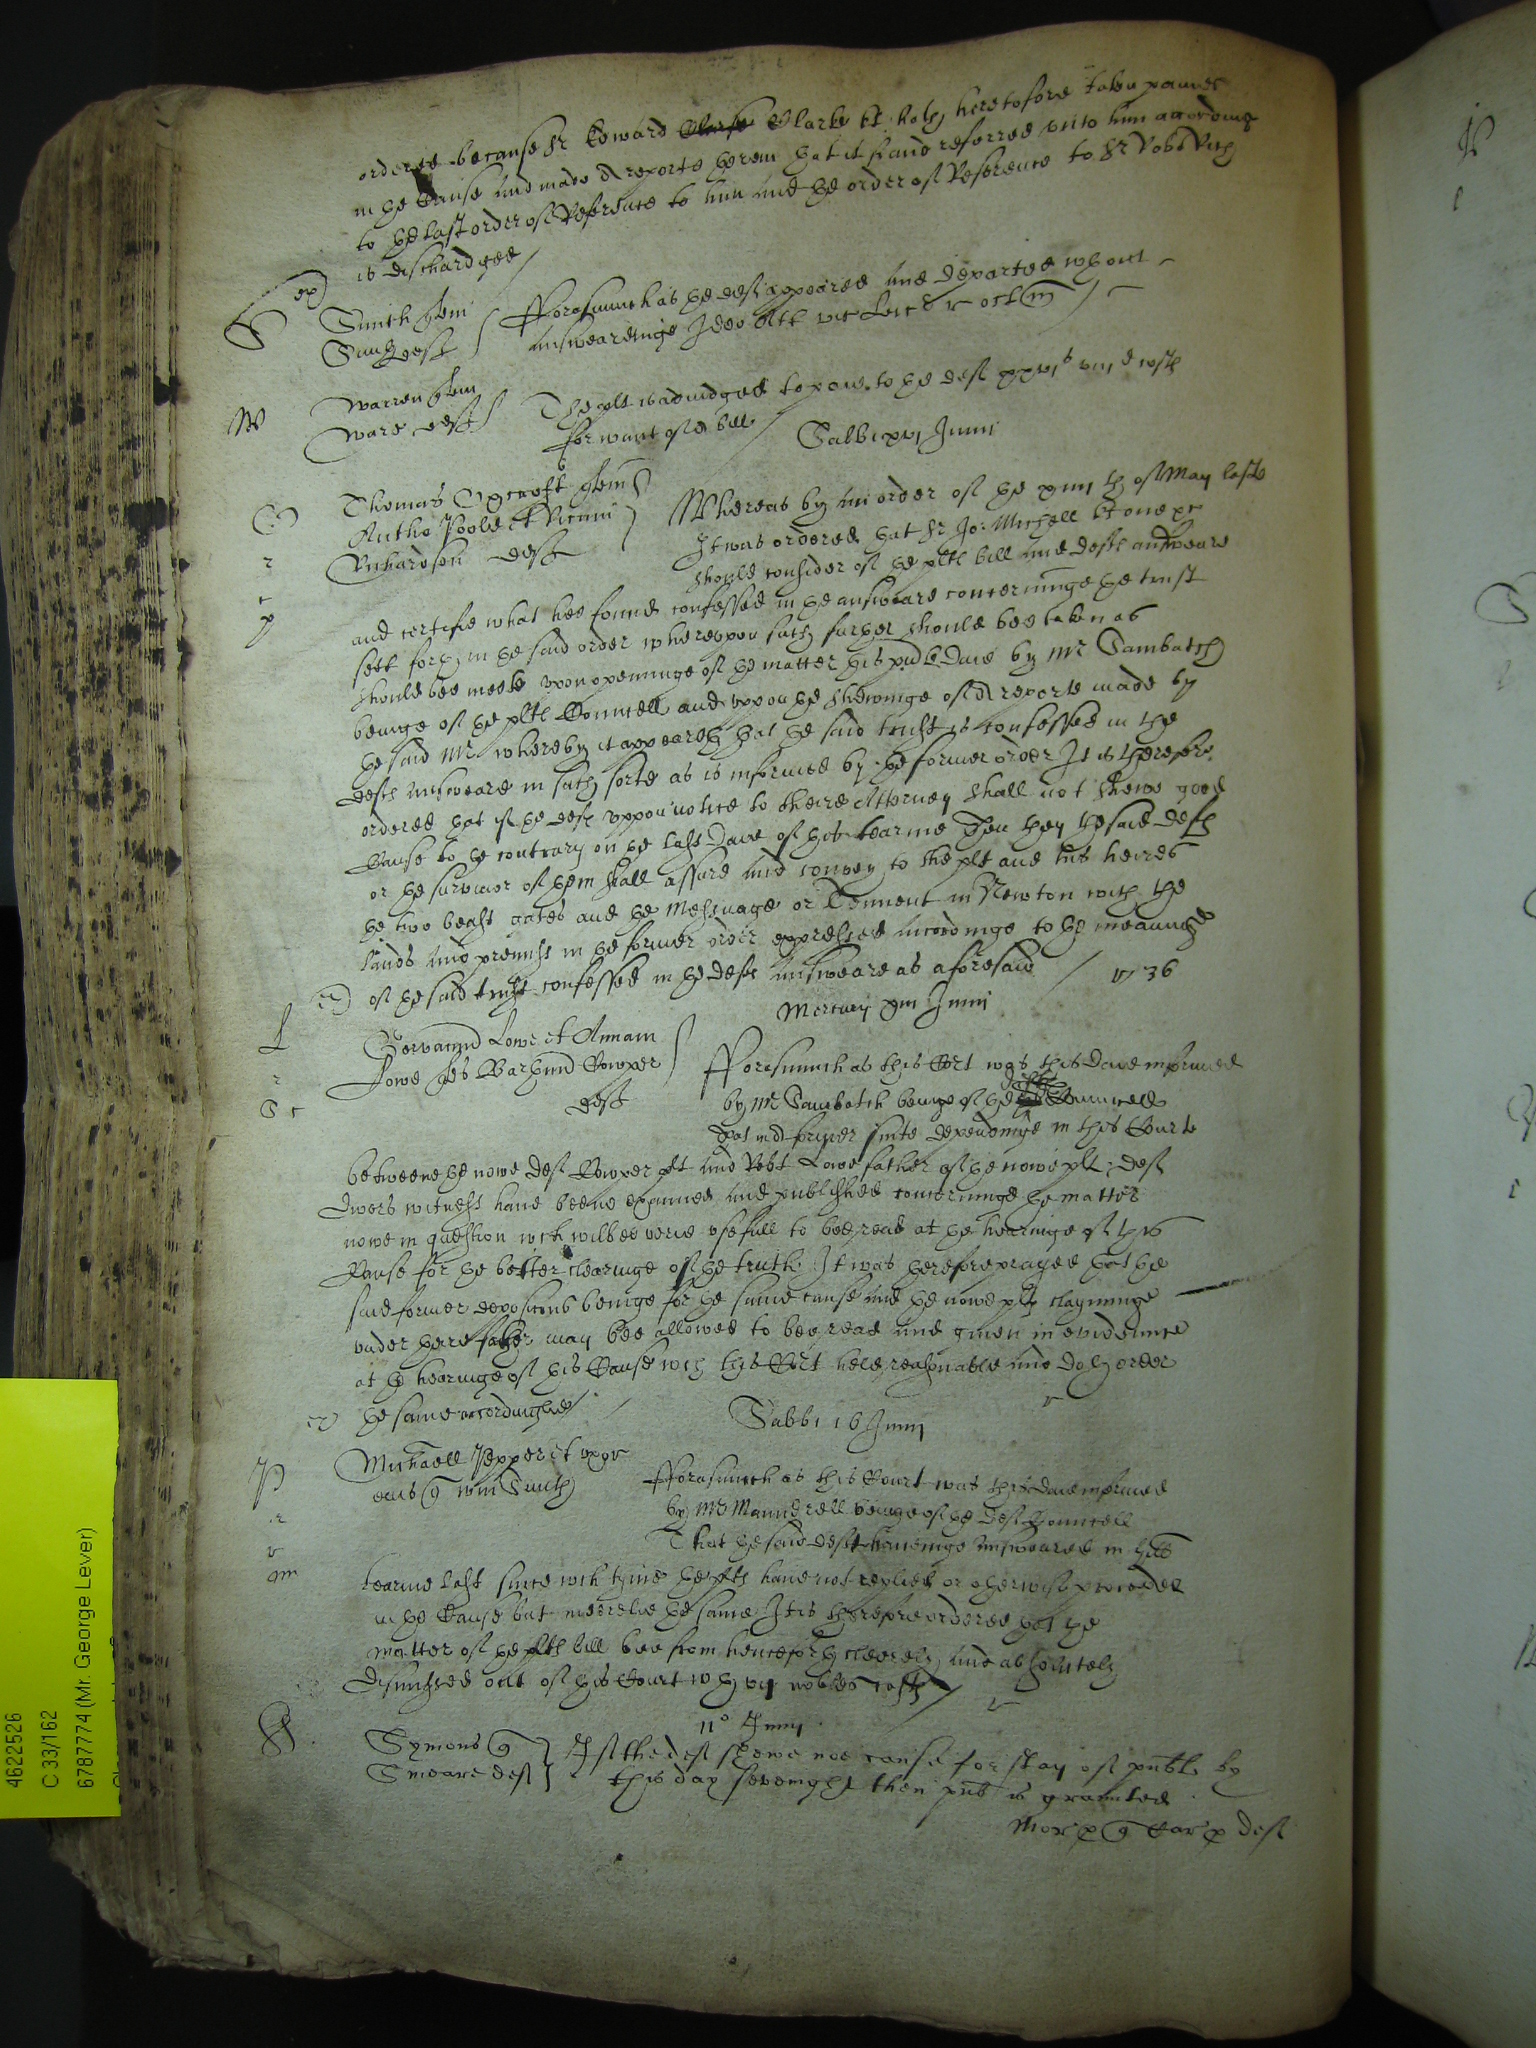 ordered because Sr Edward Clarke kt hath heretofore taken paines
in the Cause and made a reporte therein that it stand referred unto him according
to the last order of Reference to him and the order of Reference to Sr Robt Rich
is dischardged
Smith quer
Smith deft
fforasmuch as the deft appeared and departed wthout
answearinge Ideo Att vic
Warren quer
Ware deft
The plt is adiudged to paie to the deft xxvis viiid costs
for want of a bill
Sabbi xvi Junii
Thomas quer
Antho Poole et
Richardson deft
Whereas by an order of the xiiiith of May laste
It was ordered that Sr Jo: Michell kt one &c
should consider of the plts bill and defts answeare
and certifie what hee found confessed in the answeare concerninge the trust
sett forth in the said order whereupon such further should bee taken as
should bee meete upon openinge of the matter this pnte Daie by Mr Sambatch
beinge of the plts Councell and uppon the shewinge of a reporte made by
the said Mr whereby it appeareth that the said trust is confessed in the
defts answeare in such sorte as is informed by the former order It is therefore
ordered that if the defts uppon notice to theire Attorney shall not shewe good
Cause to the contrary on the last Daie of this tearme Then they the said defts
or the survivor of them shall assure and convey to the plt and his heires
the two beast gates and the Messuage or Tenement in Newton with the
lands and premiss in the former order expressed accordinge to the meaninge
of the said trust confessed in the defts answeare as aforesaid
36
Mercurii xiii Junii
Lowe et Annam
Lowe Cowper
deft
fforasmuch as this Cort was this Daie informed
by Mr Sambatch beinge of the defts Councell
that in a former suite dependinge in this Courte
betweene the nowe deft Cowper plt and Robt Lowe father of the nowe plt deft
divers witness have beene examined and published concerninge the matter
nowe in question wch wilbee verie usefull to bee read at the hearinge of this
Cause for the better clearinge of the truth It was therefore prayed that the
said former deposicons beinge for the same cause and the nowe plts clayminge
under there father may bee allowed to bee read and given in evidence
at the hearinge of this Cause wch this Cort held reasonable and doth order
the same accordinglie
Sabbi 16 Junii
Michaell Pepper et uxor
eius q Wm Smith
fforasmuch as this Court was this daie informed
by Mr Maundrell beinge of the deft Councell
That the said deft haveinge answeared in
tearme last since wch tyme the plts have not replied or otherwise proceeded
in the Cause but the same It is therefore ordered that the
matter of the plts bill bee from henceforth cleerely and absolutely
dismissed out of this Court wth vii nobles costs
11o Junii
Symons q
Smeare deft
If the deft shewe noe cause for stay of publ by
this day sevenight then pub is graunted
Mor p q Car p deft
4622526
C 33/162
6787774 (Mr. George Lever)